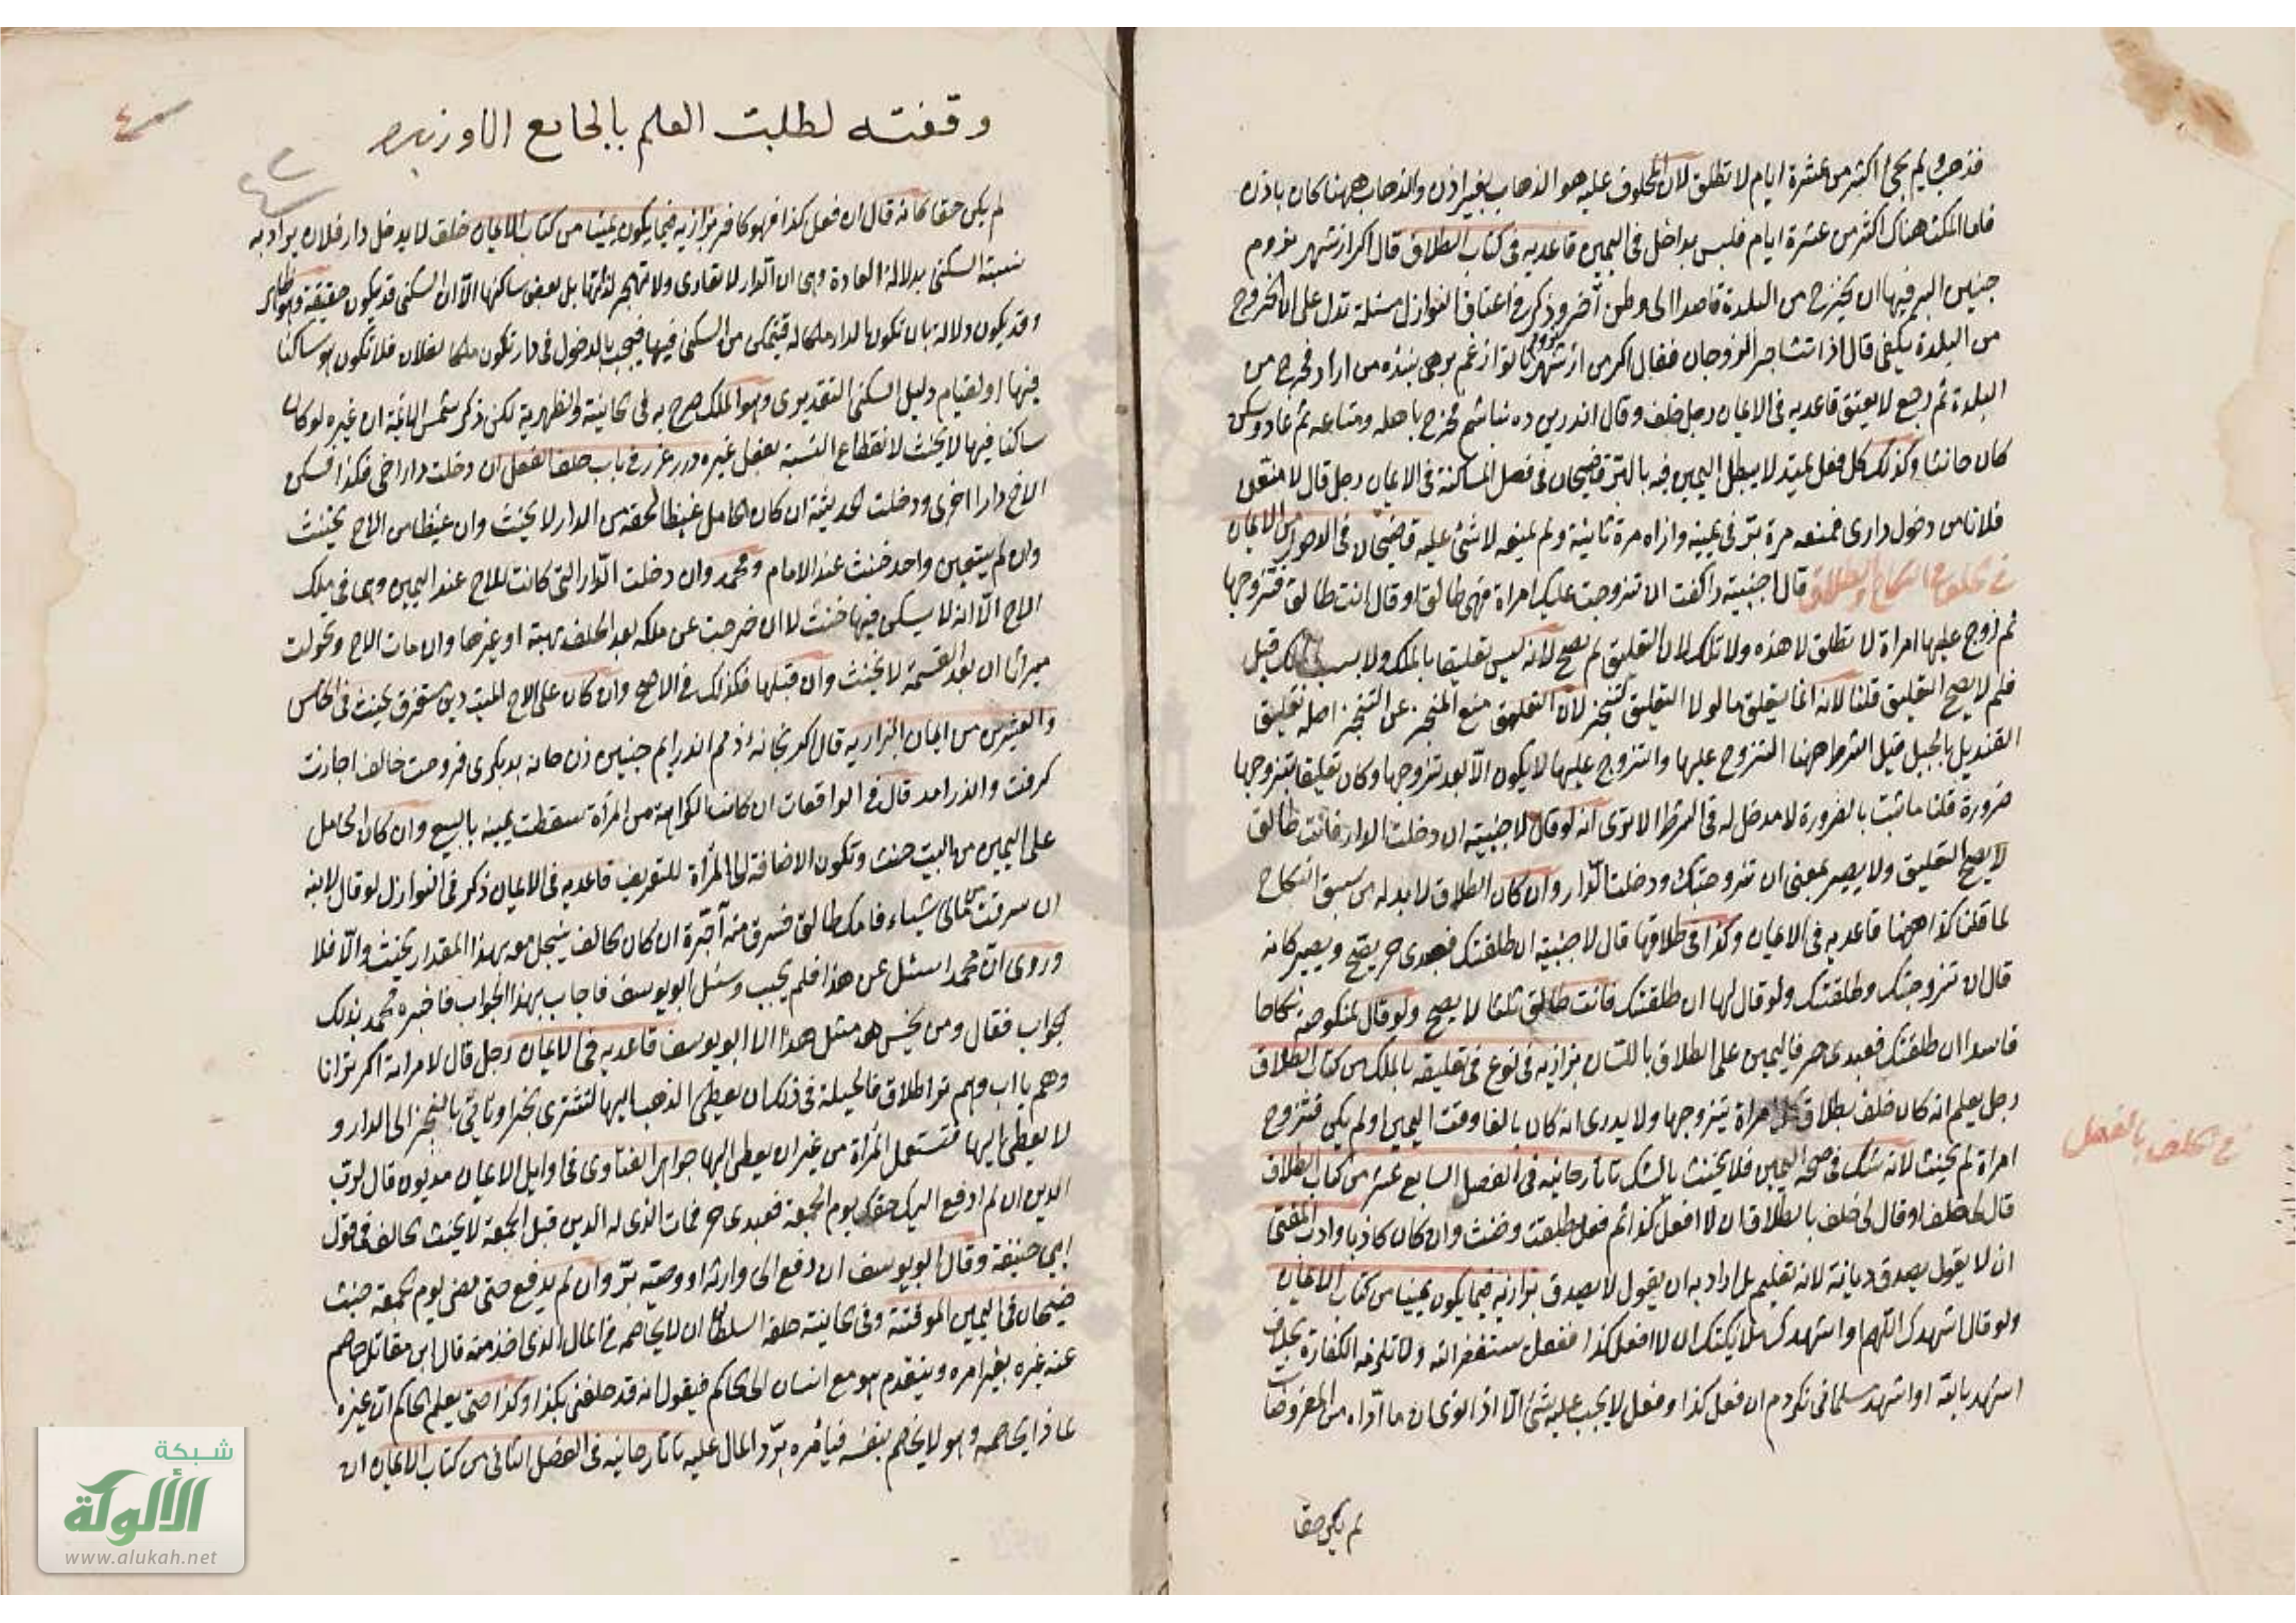 فذهب ولم يجئ اكثر من عشرة ايام لا تطلق لان المحلوف عليه هو الذهاب بغير اذن والذهاب ههنا كان باذن
فاما المكث هناك اكثر من عشرة ايام فليس بداخل في اليمين قاعديه في كتاب الطلاق قال اكر از شهر بروم
جنين البر فيها ان يخرج من البلدة قاصدا الى وطن آخر وذكر في اعتاق النوازل مسئلة تدل على ان الخروج
من البلدة يكفي قال اذا تشاجر الزوجان فقال اكر من از شهر تو از غم برهى بنده من ازاد فخرج من
البلدة ثم رجع لا يعتق قاعديه في الايمان رجل حلف وقال اندرين ده نباشم فخرج باهله ومتاعه ثم عاد وسكن
كان حانثا وكذلك كل فعل يمتد لا يبطل اليمين فيه بالبر قاضيخان في فصل المساكنة في الايمان رجل قال لامنعن
فلانا من دخول داري فمنعه مرة بر في يمينه وان راه مرة ثانية ولم يمنعه لا شئ عليه قاضيخان في الايمان
في الحلف في النكاح والطلاق قال لاجنبية را كفت ان تزوجت عليك امراة فهى طالق او قال انت طالق فتزوجها
ثم تزوج عليها امراة لا تطلق لا هذه ولا تلك لان التعليق لم يصح لانه ليس تعليقا بالملك ولا بسبب الملك قيل
فلم لا يصح التعليق قلنا لانه انما يتعلق ما لولا التعليق لتنجز لان التعليق منع المنجز عن التنجز اصله تعليق
القنديل بالحبل قيل الشرط ههنا التزوج عليها والتزوج عليها لا يكون الا بعد تزوجها وكان تعليقا بتزوجها
ضرورة قلنا ما ثبت بالضرورة لا مدخل له في الشرط الا ترى انه لو قال لاجنبية ان دخلت الدار فانت طالق
لا يصح التعليق ولا يصير بمعنى ان تزوجتك ودخلت الدار وان كان الطلاق لا بد له من سبق النكاح
لما قلنا كذا ههنا قاعديه في الايمان وكذا في طلاقها قال لاجنبية ان طلقتك فعبدى حر يصح ويصير كانه
قال ان تزوجتك وطلقتك ولو قال لها ان طلقتك فانت طالق ثلثا لا يصح ولو قال لمنكوحته نكاحا
فاسدا ان طلقتك فعبدى حر فاليمين على الطلاق باللسان بزازيه في نوع في تعليقه بالملك من كتاب الطلاق
رجل يعلم انه كان حلف بطلاق كل امراة يتزوجها ولا يدرى انه كان بالغا وقت اليمين او لم يكن فتزوج
امراة لم يحنث لانه شك في صحة اليمين فلا يحنث بالشك تاتارخانيه في الفصل السابع عشر من كتاب الطلاق
قال لى حلف او قال لى حلف بالطلاق ان لا افعل كذا ثم فعل طلقت وحنث وان كان كاذبا وارادت المفتى
ان لا يقول يصدق ديانة لانه تعليم بل اراد به ان يقول لا يصدق بزازيه فيما يكون يمينا من كتاب الايمان
ولو قال اشهدك اللهم واشهدك ملائكتك ان لا افعل كذا ففعل يستغفر الله ولا تلزمه الكفارة بخلاف
اشهد بالله او اشهد مسلمانى نكردم ان فعل كذا وفعل لا يجب عليه شئ الا اذا نوى ان ما اداه من المفروضات
لم يكن حقا
في الحلف بالفعل
وقفته لطلبت العلم بالجامع الاوزبيه
٤
٤٢
لم يكن حقا كانه قال ان فعل كذا فهو كافر بزازيه فيما يكون يمينا من كتاب الايمان حلف لا يدخل دار فلان يراد به
نسبته السكنى بدلالة العادة وهى ان الدار لا تعادى ولا تهجر لذاتها بل لبعض ساكنها الا ان السكنى قد يكون حقيقة وهو ظاهر
وقد يكون دلالة بان تكون الدار ملكا له فيتمكن من السكنى فيها فيجب بالدخول في دار تكون ملكا لفلان فلا تكون هو ساكنا
فيها او لقيام دليل السكنى التقديرى وهو الملك صرح به في الخانية والظهيرية لكن ذكر شمس الائمة ان غيره لو كان
ساكنا فيها لا يحنث لانقطاع النسبة بفعل غيره درر غرر في باب حلف الفعل ان دخلت دار اخى فكذا فسكن
الاخ دارا اخرى ودخلت الحديثة ان كان الحامل غيظا لحقه من الدار لا يحنث وان غيظا من الاخ يحنث
وان لم يتعين واحد حنث عند الامام ومحمد وان دخلت الدار التى كانت للاخ عند اليمين وهى في ملك
الاخ الا انه لا يسكن فيها حنث لا ان خرجت عن ملكه بعد الحلف بهبة او غيرها وان مات الاخ وتحولت
ميراثا ان بعد القسمة لا يحنث وان قبلها فكذلك في الاصح وان كان على الاخ الميت دين مستغرق يحنث في الخامس
والعشرين من ايمان البزازيه قال اكر بخانه ادمم اندر ايم جنين زن خانه بديكرى فروخت خالف اجازت
كرفت واندر امد قال في الواقعات ان كانت الكراهة من المرأة سقطت يمينه بالبيع وان كان الحامل
على اليمين من البيت حنث وتكون الاضافة الى المرأة للتعريف قاعديه في الايمان ذكر في النوازل لو قال لابنه
ان سرقت من مالى شيئا فامك طالق فسرق منه آجرة ان كان الحالف يبخل معه بهذا المقدار يحنث والا فلا
وروى ان محمدا سئل عن هذا فلم يجيب وسئل ابو يوسف فاجاب بهذا الجواب فاخبره محمد بذلك
الجواب فقال ومن يحسن مثل هذا الا ابو يوسف قاعديه في الايمان رجل قال لامراته اكر ترانا
وهم يا اب وهم تو اطلاق فالحيلة في ذلك ان يعطى الذهب اليها لتشترى بخبز او تاتى بالخبز الى الدار و
لا يعطى اليها فتستعمل المرأة من غير ان يعطى اليها جواهر الفتاوى في اوايل الايمان مديون قال لرب
الدين ان لم ادفع اليك حقك يوم الجمعة فعبدى حر فمات الذى له الدين قبل الجمعة لا يحنث الحالف في قول
ابي حنيفة وقال ابو يوسف ان دفع الى وارثه او وصيه بر وان لم يدفع حتى مضى يوم الجمعة حنث
ضيخان في اليمين الموقتة وفى الخانية حلفه السلطان ان لا يخاصمه في المال الذى اخذ منه قال ابن مقاتل يخاصم
عنه غيره بغير امره ويتقدم هو مع انسان الى الحاكم فيقول انه قد حلفنى بكذا وكذا حتى يعلم الحاكم ان غيره
لماذا يخاصمه وهو لا يخاصم بنفسه فيأمره برد المال عليه تاتارخانيه في الفصل الثانى من كتاب الايمان ان
شبكة
الألوكة
www.alukah.net